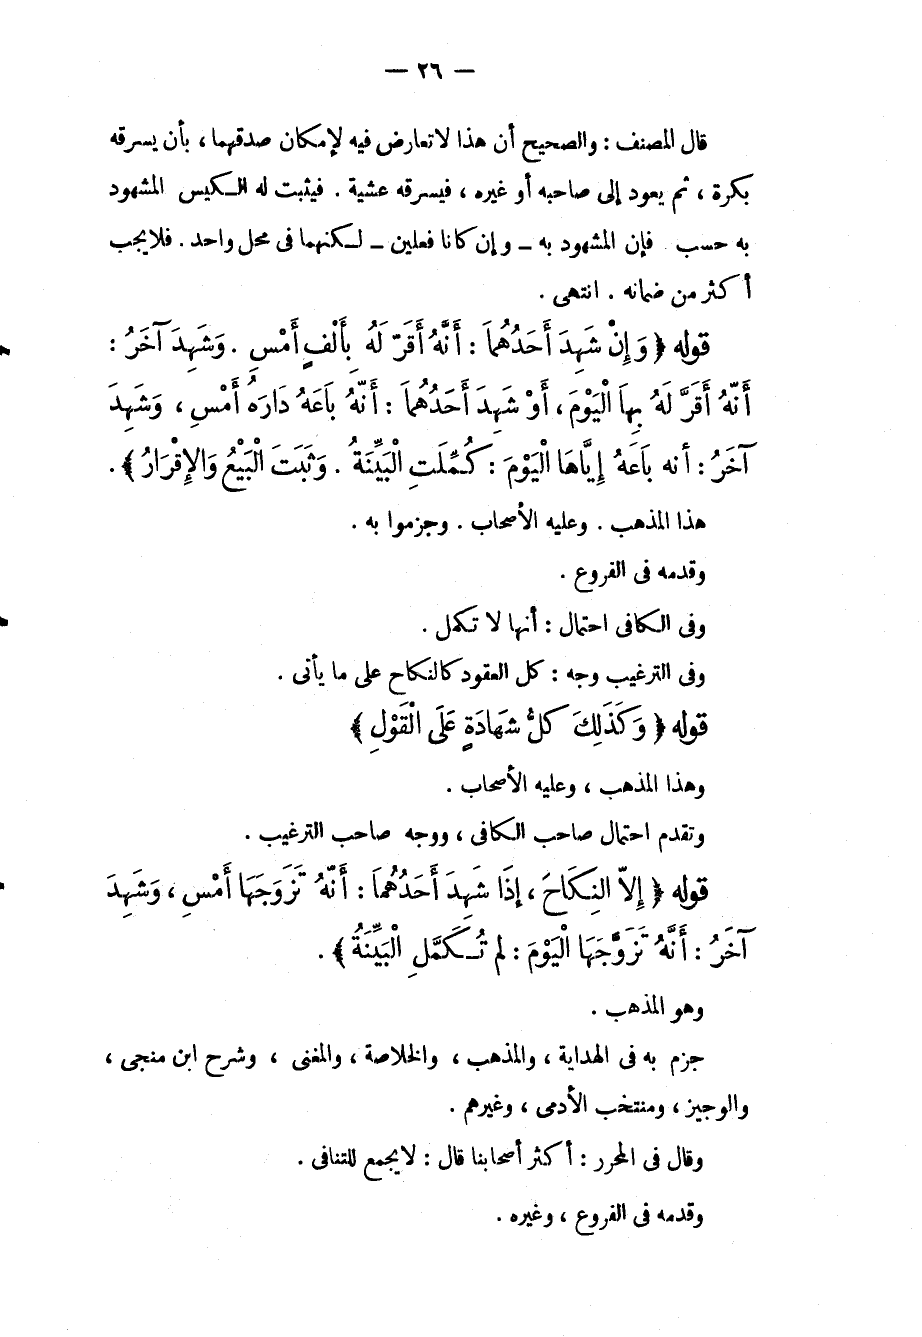 — ٢٦ —
قال المصنف : والصحيح أن هذا لا تعارض فيه لإمكان صدقهما ، بأن يسرقه
بكرة ، ثم يعود إلى صاحبه أو غيره ، فيسرقه عشية . فيثبت له الكيس المشهود
به حسب . فإن المشهود به – وإن كانا فعلين – لكنهما فى محل واحد . فلا يجب
أكثر من ضمانه . انتهى .
قوله ﴿ وَإِنْ شَهِدَ أَحَدُهُمَا : أَنَّهُ أَقَرَّ لَهُ بِأَلْفٍ أَمْسِ . وَشَهِدَ آخَرُ :
أَنَّهُ أَقَرَّ لَهُ بِهَا الْيَوْمَ ، أَوْ شَهِدَ أَحَدُهُمَا : أَنَّهُ بَاعَهُ دَارَهُ أَمْسِ ، وَشَهِدَ
آخَرُ : أنه بَاعَهُ إِيَّاهَا الْيَوْمَ : كُمِّلَتِ الْبَيِّنَةُ . وَثَبَتَ الْبَيْعُ وَالإِقْرَارُ ﴾ .
هذا المذهب . وعليه الأصحاب . وجزموا به .
وقدمه فى الفروع .
وفى الكافى احتمال : أنها لا تكمل .
وفى الترغيب وجه : كل العقود كالنكاح على ما يأتى .
قوله ﴿ وَكَذَلِكَ كلُّ شَهَادَةٍ عَلَى الْقَوْلِ ﴾
وهذا المذهب ، وعليه الأصحاب .
وتقدم احتمال صاحب الكافى ، ووجه صاحب الترغيب .
قوله ﴿ إِلاَّ النِكَاحَ ، إِذَا شَهِدَ أَحَدُهُمَا : أَنَّهُ تَزَوَّجَهَا أَمْسِ ، وَشَهِدَ
آخَرُ : أَنَّهُ تَزَوَّجَهَا الْيَوْمَ : لم تُكَمَّلِ الْبَيِّنَةُ ﴾ .
وهو المذهب .
جزم به فى الهداية ، والمذهب ، والخلاصة ، والمغنى ، وشرح ابن منجى ،
والوجيز ، ومنتخب الأدمى ، وغيرهم .
وقال فى المحرر : أكثر أصحابنا قال : لا يجمع للتنافى .
وقدمه فى الفروع ، وغيره .